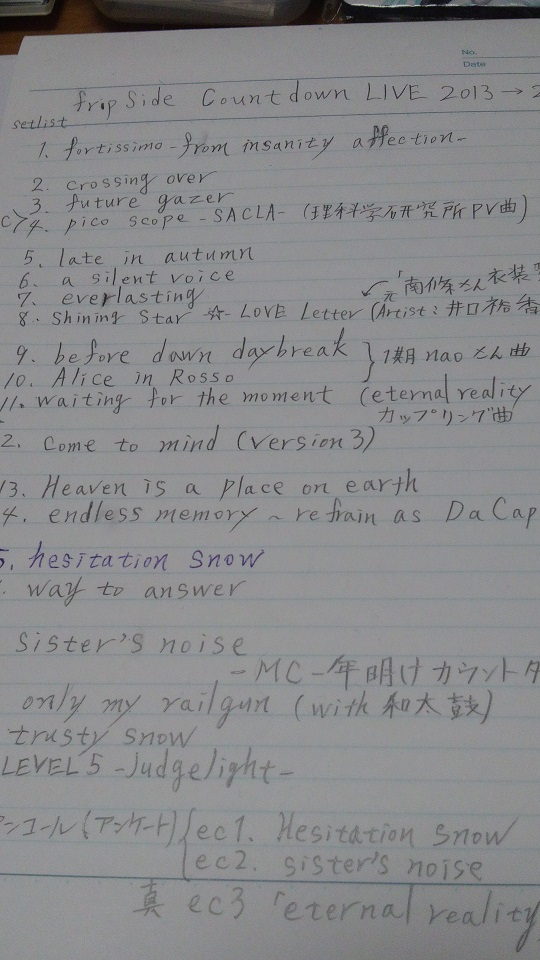 No.
Date
fripSide Countdown LIVE 2013→2
setlist
1. fortissimo-from insanity affection-
2. crossing over
3. future gazer
C>4. pico scope -SACLA- (理科学研究所PV曲)
5. late in autumn
6. a silent voice
7. everlasting
「南條さん衣装
8. Shining Star ☆- LOVE Letter (Artist: 井口裕香
9. before dawn daybreak
10. Alice in Rosso
}1期naoさん曲
11. waiting for the moment (eternal reality
カップリング曲
2. Come to mind (version3)
13. Heaven is a place on earth
4. endless memory ~ refrain as DaCap
5. hesitation snow
. way to answer
sister's noise
-MC-年明けカウントダ
only my railgun (with 和太鼓)
trusty snow
LEVEL5 -Judgelight-
アンコール(アンケート){ec1. Hesitation snow
ec2. sister's noise
真 ec3 「eternal reality